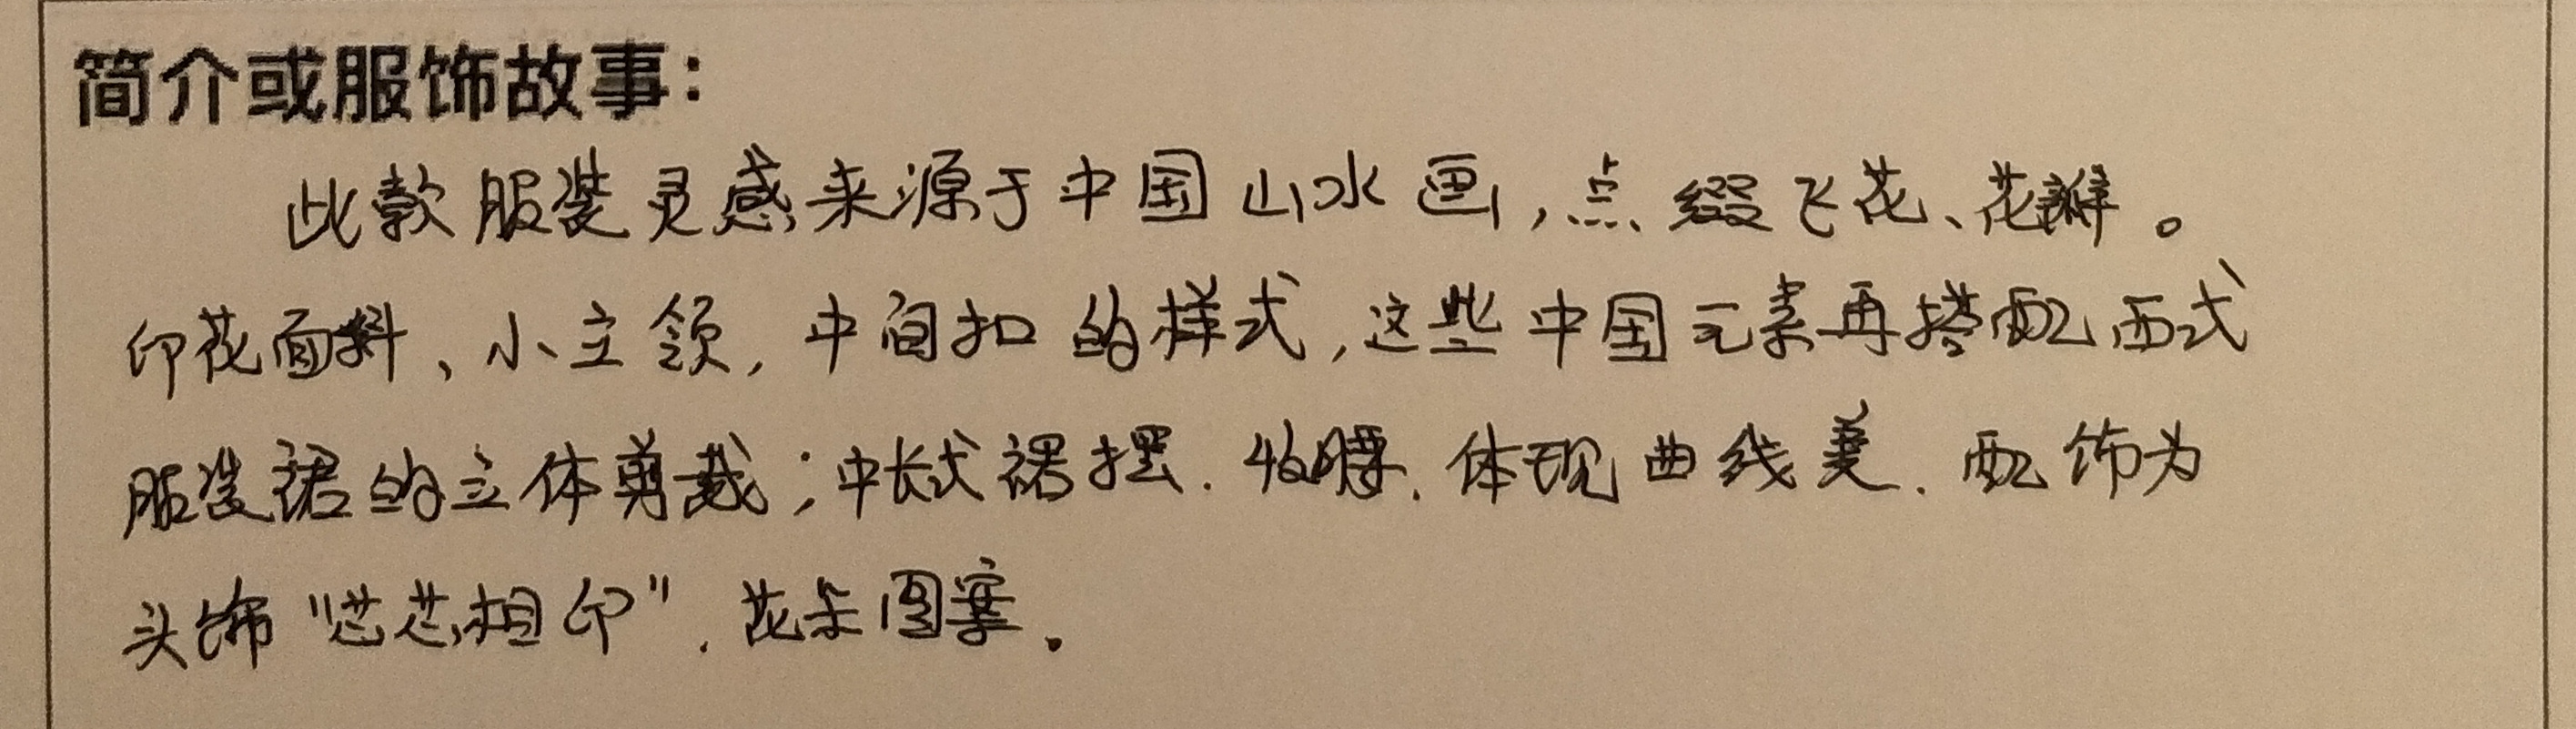 简介或服饰故事：
此款服装灵感来源于中国山水画，点缀飞花、花瓣。
印花面料、小立领，中间扣的样式，这些中国元素再搭配西式
服装裙的立体剪裁；中长式裙摆.收腰.体现曲线美.配饰为
头饰"芯芯相印".花朵图案.